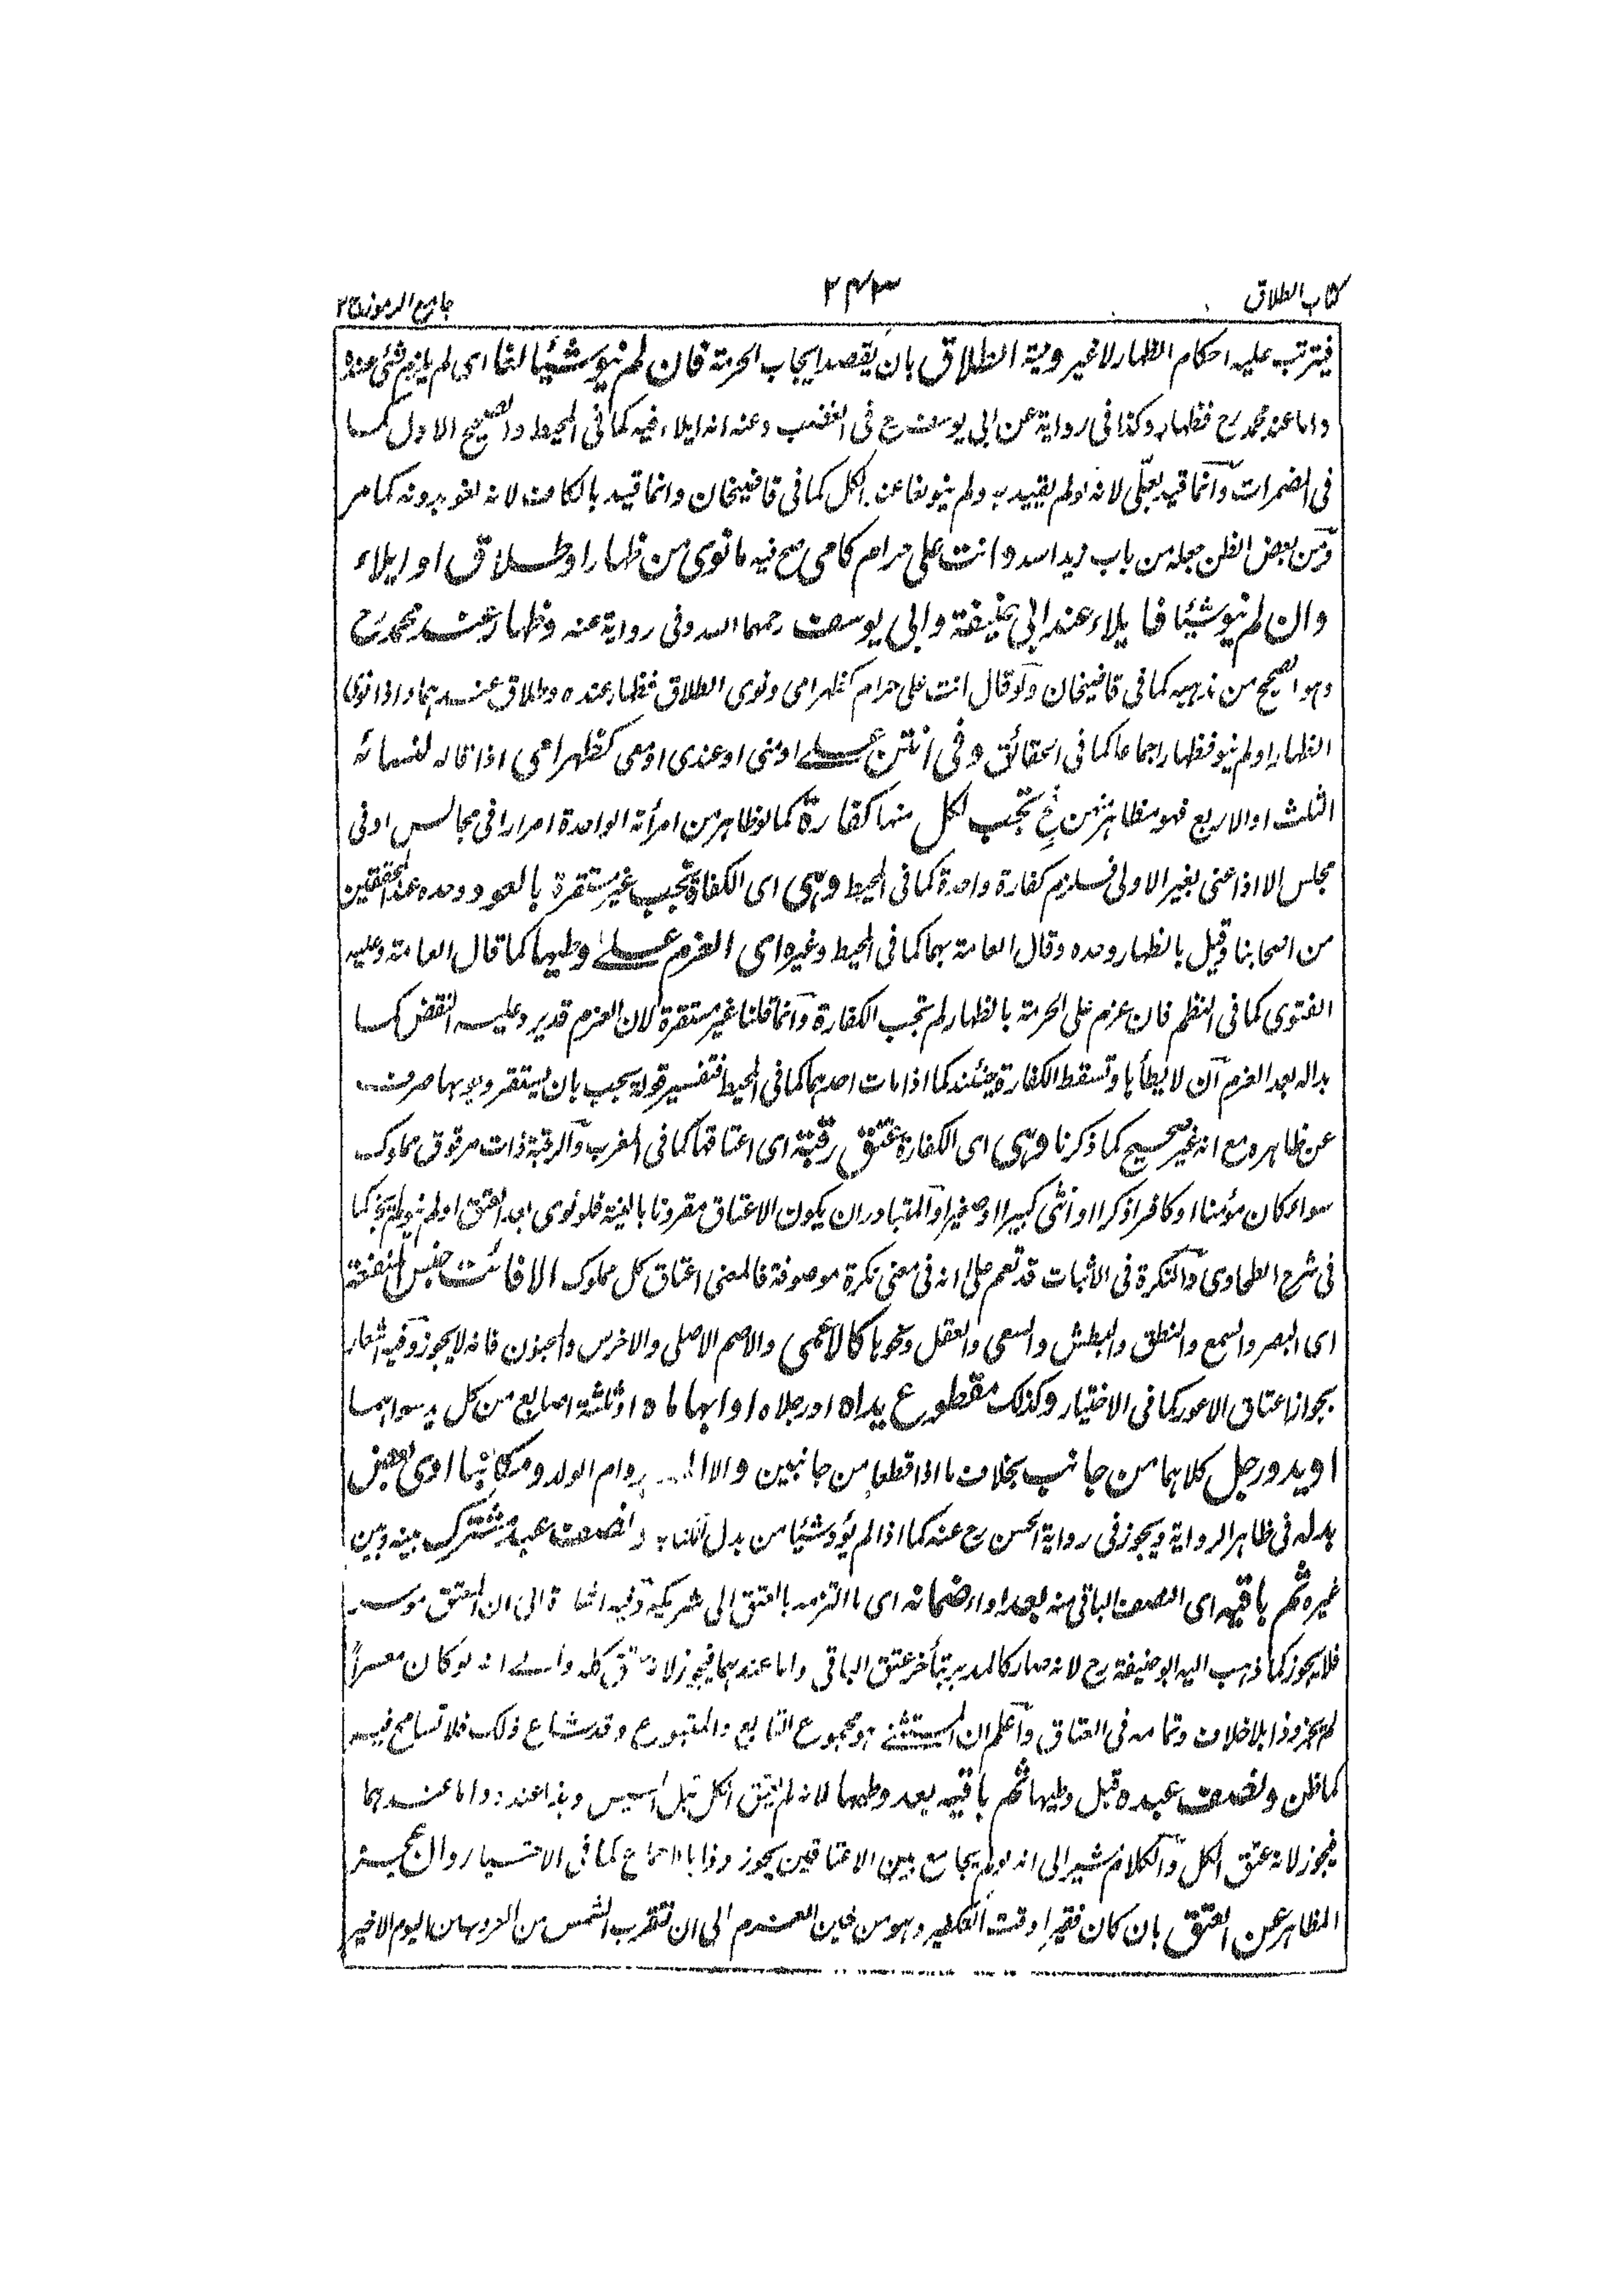 كتاب الطلاق ٢٤٣ جامع الرموز ج٢
فيترتب عليه احكام الظهار لا غير ونية الطلاق بان يقصد ايجاب الحرمة فان لم ينو شيئا لغا اى لم يلزم شئ عنده
واما عند محمد رح فظهار وكذا فى رواية عن ابى يوسف رح فى الغضب وعنه انه ايلاء فيه كما فى المحيط والصحيح الاول كما
فى المضمرات وانما قيد بعلى لانه لو لم يقيد به ولم ينو لغا عند الكل كما فى قاضيخان وانما قيد بالكاف لانه لغو بدونه كما مر
ومن بعض الظن جعله من باب زيد اسد وانت على حرام كامى صح فيه ما نوى من ظهار او طلاق او ايلاء
وان لم ينو شيئا فايلاء عند ابى حنيفة وابى يوسف رحمهما الله وفى رواية عنه وظهار عند محمد رح
وهو الصحيح من مذهبه كما فى قاضيخان ولو قال انت على حرام كظهر امى ونوى الطلاق فظهار عنده وطلاق عندهما واذا نوى
الظهار او لم ينو فظهار اجماعا كما فى الحقائق وفى انتن على او منى او عندى او معى كظهر امى اذا قاله لنسائه
الثلث او الاربع فهو مظاهر منهن تجب لكل منها كفارة كما لو ظاهر من امرأته الواحدة مرارا فى مجالس او فى
مجلس الا اذا عنى بغير الاولى فيلزم كفارة واحدة كما فى المحيط وهى اى الكفارة تجب غير مستقرة بالعود وحده عند المحققين
من اصحابنا وقيل بالظهار وحده وقال العامة بهما كما فى المحيط وغيره اى العزم على وطيها كما قال العامة وعليه
الفتوى كما فى النظم فان عزم على الحرمة بالظهار لم تجب الكفارة وانما قلنا غير مستقرة لان العزم قد يرد عليه النقض كما
بدا له بعد العزم ان لا يطأها وتسقط الكفارة حينئذ كما اذا مات احدهما كما فى المحيط فتفسير قوله يجب بان يستقر وجوبها صرف
عن ظاهره مع انه غير صحيح كما ذكرنا وهى اى الكفارة عتق رقبة اى اعتاقها كما فى المغرب والرقبة ذات مرقوق مملوك
سواء كان مؤمنا او كافرا ذكرا او انثى كبيرا او صغيرا والمتبادر ان يكون الاعتاق مقرونا بالنية فلو نوى بعد العتق او لم ينو لم يجز كما
فى شرح الطحاوى والنكرة فى الاثبات قد تعم على انه فى معنى نكرة موصوفة فالمعنى اعتاق كل مملوك الا فائت جنس المنفعة
اى البصر والسمع والنطق والبطش والسعى والعقل ونحوها كالاعمى والاصم الاصلى والاخرس والمجنون فانه لا يجوز وفيه اشعار
بجواز اعتاق الاعور كما فى الاختيار وكذلك مقطوع يداه او رجلاه او ابهاماه او ثلثة اصابع من كل يد سواهما
او يد ورجل كلاهما من جانب بخلاف ما اذا قطعا من جانبين والا وام الولد ومكاتبا ادى بعض
بدله فى ظاهر الرواية ويجوز فى رواية الحسن رح عنه كما اذا لم يؤد شيئا من بدل الكتابة ونصف عبد مشترك بينه وبين
غيره ثم باقيه اى النصف الباقى منه بعد اداء ضمانه اى ما التزمه بالعتق الى شريكه وفيه اشارة الى ان المعتق موسر
فلا يجوز كما ذهب اليه ابو حنيفة رح لانه صار كالمدبر بتأخر عتق الباقى واما عندهما فيجوز لانه عتق كله والى انه لو كان معسرا
لم يجز وذا بلا خلاف وتمامه فى العتاق واعلم ان المستثنى هو مجموع التابع والمتبوع وقد شاع ذلك فلا تسامح فيه
كما ظن ونصف عبده قبل وطيها ثم باقيه بعد وطيها لانه لم يعتق الكل قبل المسيس وهذا عنده واما عندهما
فيجوز لانه عتق الكل والكلام مشير الى انه لو لم يجامع بين الاعتاقين يجوز وذا بالاجماع كما فى الاختيار وان عجز
المظاهر عن العتق بان كان فقيرا وقت التكفير وهو من حين العزم الى ان تقرب الشمس من الغروب من اليوم الاخير